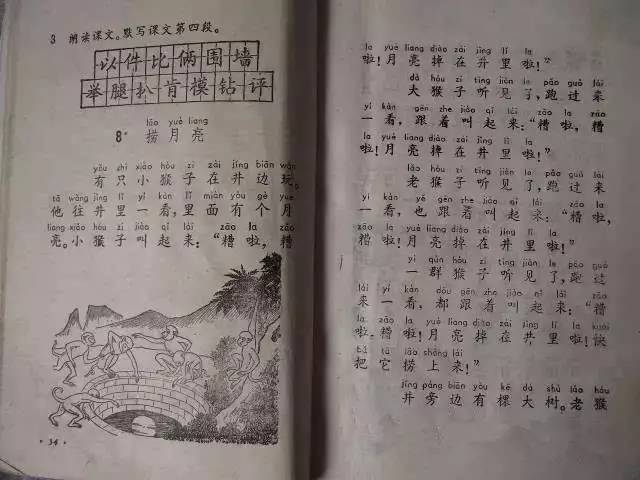 3 朗读课文。默写课文第四段。
以件比俩围墙
举腿扒肯模钻评
lāo yuè liang
8* 捞月亮
yǒu zhī xiǎo hóu zi zài jǐng biān wán
有只小猴子在井边玩。
tā wǎng jǐng lǐ yí kàn lǐ miàn yǒu gè yuè
他往井里一看，里面有个月
liang xiǎo hóu zi jiào qǐ lái zāo la zāo
亮。小猴子叫起来：“糟啦，糟
· 34 ·
la yuè liang diào zài jǐng lǐ la
啦！月亮掉在井里啦！”
dà hóu zi tīng jiàn le pǎo guò lái
大猴子听见了，跑过来
yí kàn gēn zhe jiào qǐ lái zāo la zāo
一看，跟着叫起来：“糟啦，糟
la yuè liang diào zài jǐng lǐ la
啦！月亮掉在井里啦！”
lǎo hóu zi tīng jiàn le pǎo guò lái
老猴子听见了，跑过来
yí kàn yě gēn zhe jiào qǐ lái zāo la
一看，也跟着叫起来：“糟啦，
zāo la yuè liang diào zài jǐng lǐ la
糟啦！月亮掉在井里啦！”
yì qún hóu zi tīng jiàn le pǎo guò
一群猴子听见了，跑过
lái yí kàn dōu gēn zhe jiào qǐ lái zāo
来一看，都跟着叫起来：“糟
la zāo la yuè liang diào zài jǐng lǐ la kuài
啦，糟啦！月亮掉在井里啦！快
bǎ tā lāo shàng lái
把它捞上来！”
jǐng páng biān yǒu kē dà shù lǎo hóu
井旁边有棵大树。老猴